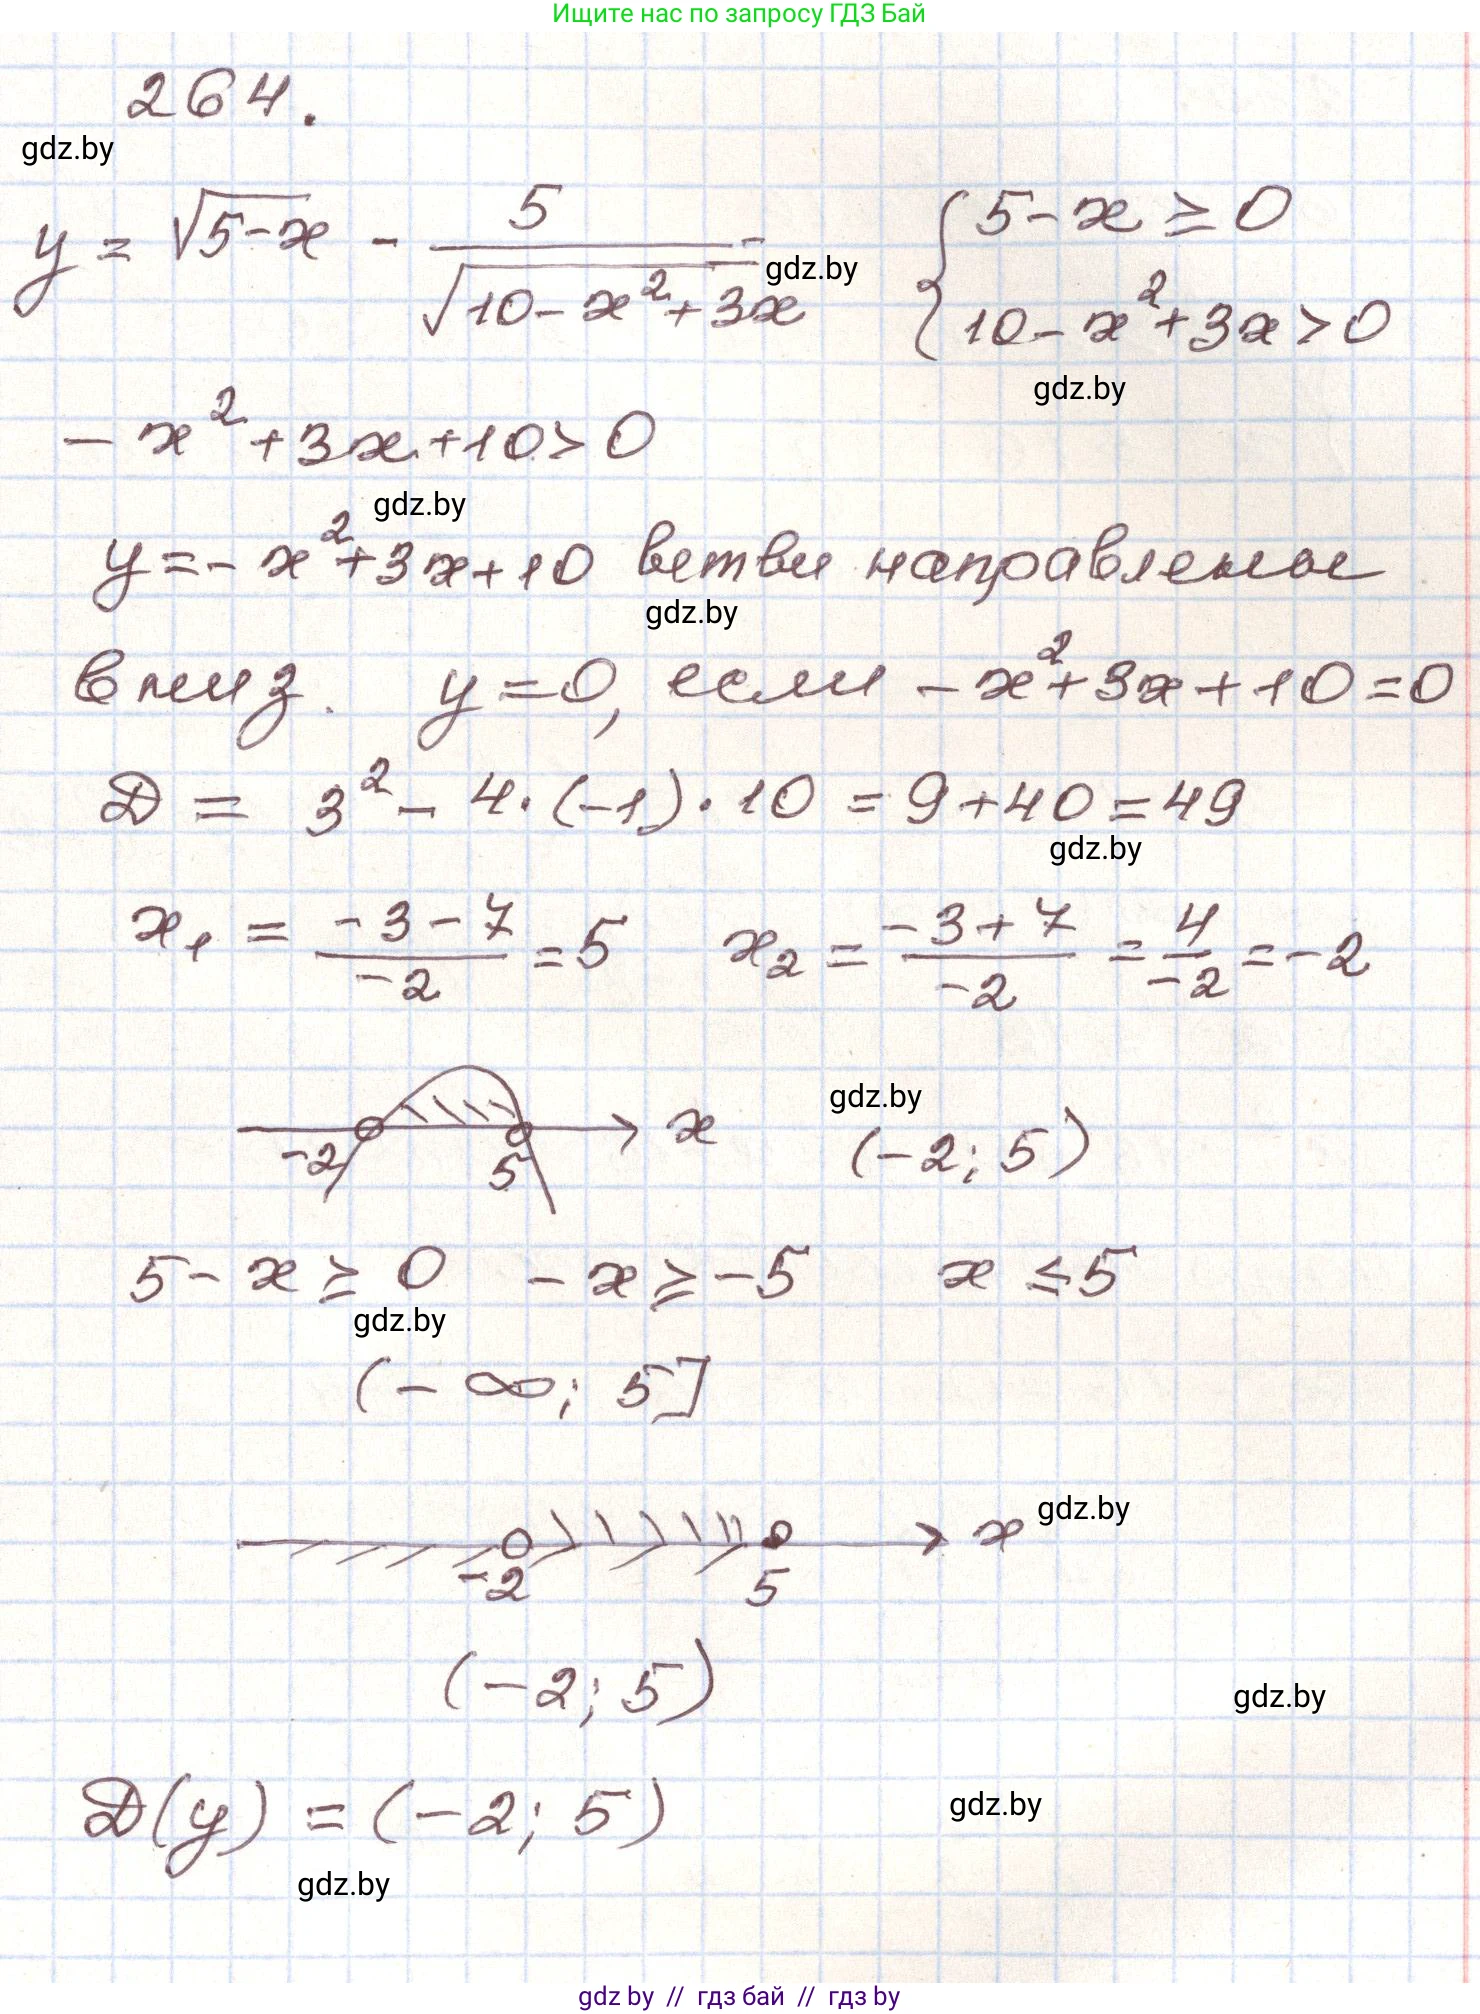 Ищите нас по запросу ГДЗ Бай
264.
gdz.by
y = √5-x - 5/√10-x²+3x gdz.by { 5-x ≥ 0
10-x²+3x > 0
gdz.by
-x²+3x+10>0
gdz.by
y=-x²+3x+10 ветви направлены
gdz.by
вниз. y=0, если -x²+3x+10=0
D = 3² - 4·(-1)·10 = 9+40=49
gdz.by
x₁ = -3-7/-2 = 5 x₂ = -3+7/-2 = 4/-2 = -2
gdz.by
-2 5 x (-2; 5)
5-x ≥ 0 -x ≥ -5 x ≤ 5
gdz.by
(-∞; 5]
gdz.by
-2 5 x
(-2; 5)
gdz.by
D(y) = (-2; 5)
gdz.by
gdz.by
gdz by // гдз бай // гдз by